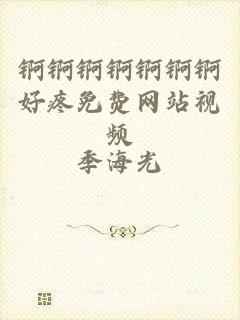 锕锕锕锕锕锕锕
好疼免费网站视
频
季海光